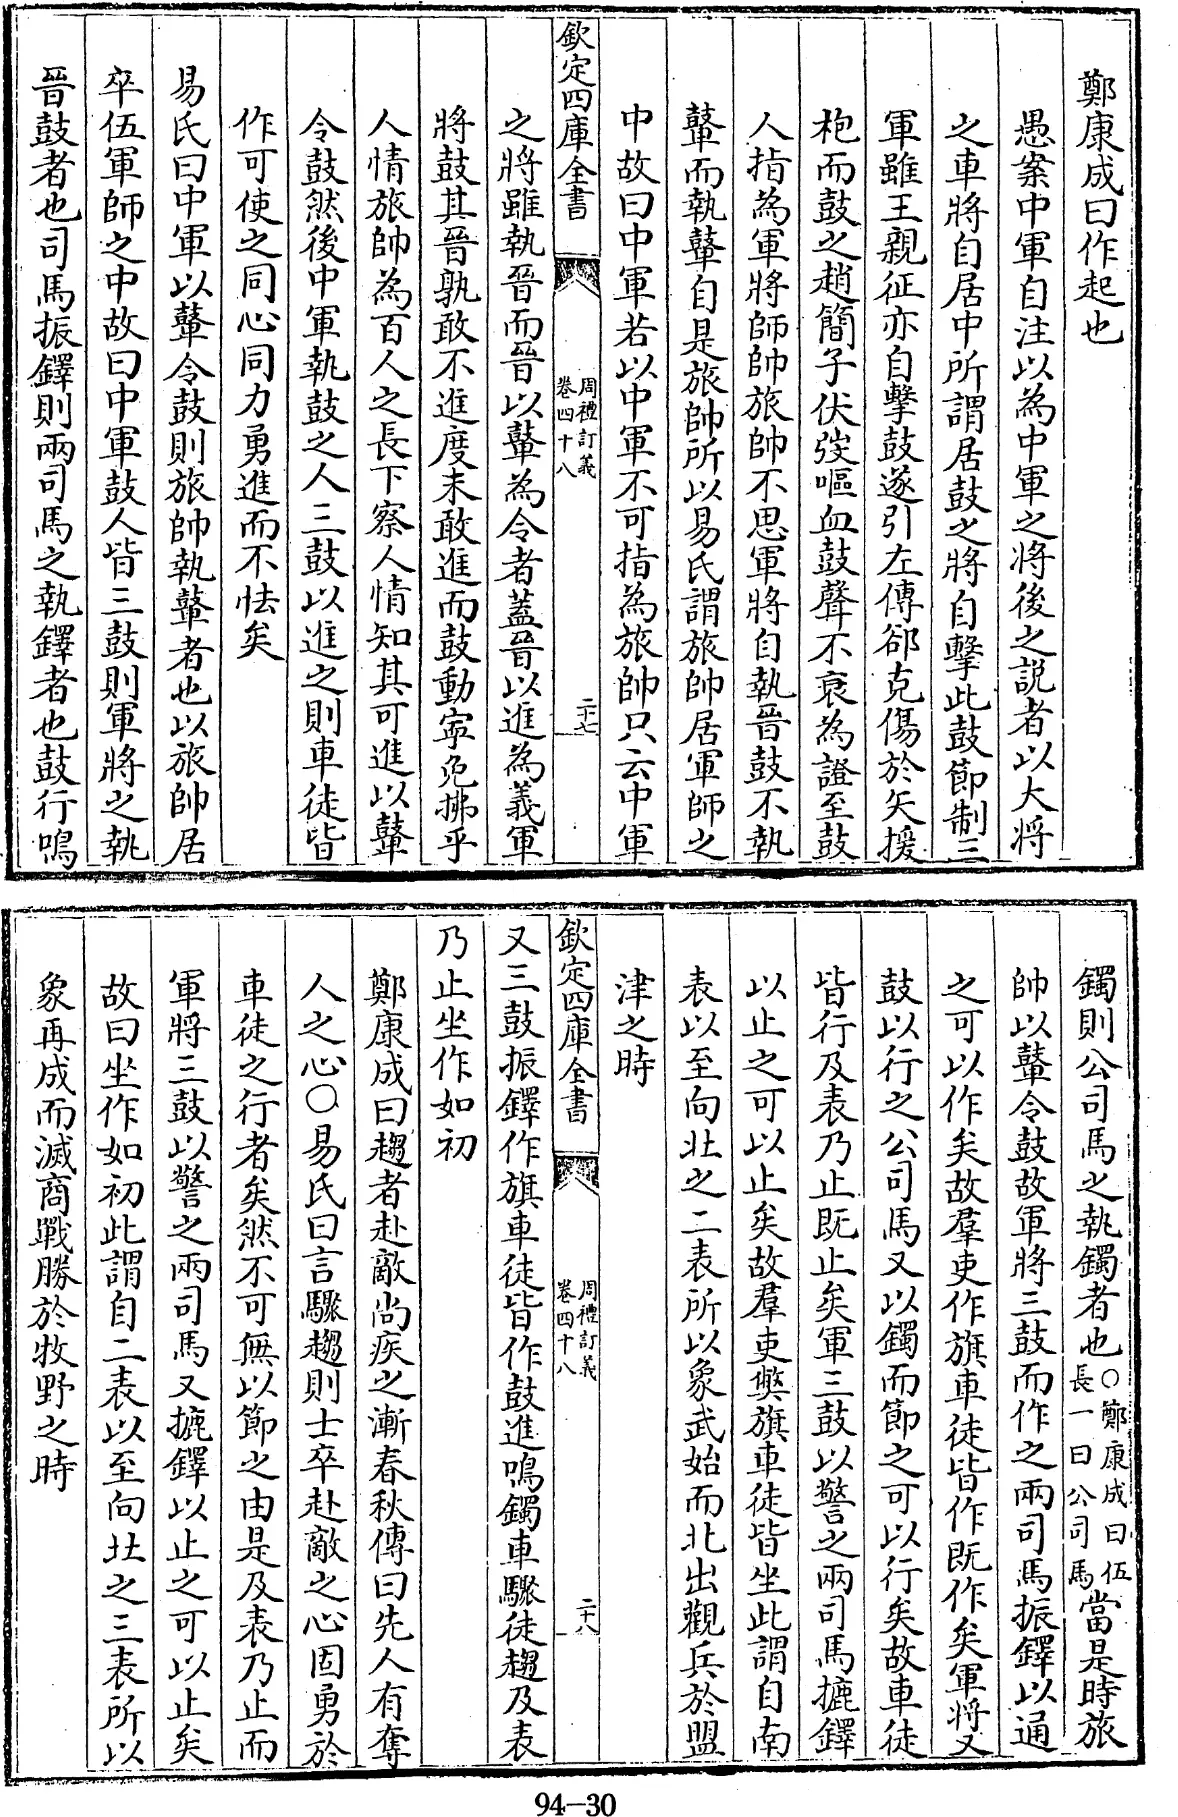 鄭康成曰作起也
愚案中軍自注以為中軍之將後之說者以大將
之車將自居中所謂居鼓之將自擊此鼓節制三
軍雖王親征亦自擊鼓遂引左傳郤克傷於矢援
枹而鼓之趙簡子伏弢嘔血鼓聲不衰為證至鼓
人指為軍將師帥旅帥不思軍將自執晉鼓不執
鼙而執鼙自是旅帥所以易氏謂旅帥居軍師之
中故曰中軍若以中軍不可指為旅帥只云中軍
欽定四庫全書
周禮訂義
卷四十八
二十七
之將雖執晉而晉以鼙為令者蓋晉以進為義軍
將鼓其晉孰敢不進度未敢進而鼓動寕免拂乎
人情旅帥為百人之長下察人情知其可進以鼙
令鼓然後中軍執鼓之人三鼓以進之則車徒皆
作可使之同心同力勇進而不怯矣
易氏曰中軍以鼙令鼓則旅帥執鼙者也以旅帥居
卒伍軍師之中故曰中軍鼓人皆三鼓則軍將之執
晉鼓者也司馬振鐸則兩司馬之執鐸者也鼓行鳴
鐲則公司馬之執鐲者也○鄭康成曰伍長一曰公司馬當是時旅
帥以鼙令鼓故軍將三鼓而作之兩司馬振鐸以通
之可以作矣故羣吏作旗車徒皆作既作矣軍將又
鼓以行之公司馬又以鐲而節之可以行矣故車徒
皆行及表乃止既止矣軍三鼓以警之兩司馬摝鐸
以止之可以止矣故羣吏獘旗車徒皆坐此謂自南
表以至向北之二表所以象武始而北出觀兵於盟
津之時
欽定四庫全書
周禮訂義
卷四十八
二十八
又三鼓振鐸作旗車徒皆作鼓進鳴鐲車驟徒趨及表
乃止坐作如初
鄭康成曰趨者赴敵尚疾之漸春秋傳曰先人有奪
人之心○易氏曰言驟趨則士卒赴敵之心固勇於
車徒之行者矣然不可無以節之由是及表乃止而
軍將三鼓以警之兩司馬又摝鐸以止之可以止矣
故曰坐作如初此謂自二表以至向北之三表所以
象再成而滅商戰勝於牧野之時
94-30